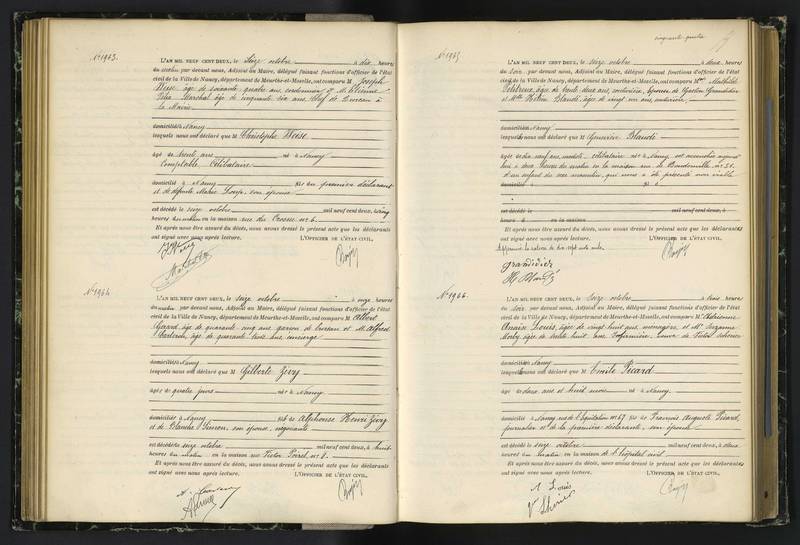 N° 1963.
L'AN MIL NEUF CENT DEUX, le Seize octobre à dix heures
du matin par devant nous, Adjoint au Maire, délégué faisant fonctions d'officier de l'état
civil de la Ville de Nancy, département de Meurthe-et-Moselle, ont comparu M Joseph
Weise âgé de soixante quatre ans, cordonnier et M. Etienne
Marchal âgé de cinquante six ans, Chef de Bureau à
la Mairie
domiciliés à Nancy
lesquels nous ont déclaré que M Christophe Weise
âgé de trente ans né à Nancy
Comptable Célibataire
domicilié à Nancy fils du premier déclarant
et de défunte Marie Loup, son épouse
est décédé le seize octobre mil neuf cent deux, à cinq
heures du matin en la maison rue du Crosne n° 6.
Et après nous être assuré du décès, nous avons dressé le présent acte que les déclarants
ont signé avec nous après lecture. L'OFFICIER DE L'ÉTAT CIVIL,
N° 1964
L'AN MIL NEUF CENT DEUX, le seize octobre à onze heures
du matin par devant nous, Adjoint au Maire, délégué faisant fonctions d'officier de l'état
civil de la Ville de Nancy, département de Meurthe-et-Moselle, ont comparu M Albert
âgé de quarante cinq ans garçon de bureau et M. Alfred
âgé de quarante trois ans concierge
domiciliés à Nancy
lesquels nous ont déclaré que M Gilberte Zévy
âgée de quatre jours née à Nancy
domiciliée à Nancy fille de Alphonse Henri Zévy
et de Blanche Simon, son épouse, négociants
est décédée le seize octobre mil neuf cent deux, à huit
heures du matin en la maison rue Victor Poirel n° 8.
Et après nous être assuré du décès, nous avons dressé le présent acte que les déclarants
ont signé avec nous après lecture. L'OFFICIER DE L'ÉTAT CIVIL,
cinquante quatre
N° 1965
L'AN MIL NEUF CENT DEUX, le Seize octobre à deux heures
du Soir par devant nous, Adjoint au Maire, délégué faisant fonctions d'officier de l'état
civil de la Ville de Nancy, département de Meurthe-et-Moselle, ont comparu Mme Mathilde
âgée de trente deux ans, couturière, épouse de Gaston Grandidier
et Mlle Hélène Blaudé, âgée de vingt un ans, couturière
domiciliées à Nancy
lesquelles nous ont déclaré que M Geneviève Blaudé
âgée de dix neuf ans, modiste, célibataire née à Nancy est accouchée aujourd'
hui à deux heures du matin en la maison rue de Boudonville n° 51.
d'un enfant du sexe masculin, qui nous a été présenté non viable
domicilié à
est décédé le mil neuf cent deux, à
heures d en la maison
Et après nous être assuré du décès, nous avons dressé le présent acte que les déclarants
ont signé avec nous après lecture. L'OFFICIER DE L'ÉTAT CIVIL,
Grandidier
H Blaudé
N° 1966.
L'AN MIL NEUF CENT DEUX, le Seize octobre à trois heures
du Soir par devant nous, Adjoint au Maire, délégué faisant fonctions d'officier de l'état
civil de la Ville de Nancy, département de Meurthe-et-Moselle, ont comparu Mme Adrienne
Louis, âgée de vingt huit ans, ménagère, et Me Suzanne
âgée de trente huit ans Infirmière, veuve de Victor
domiciliées à Nancy
lesquelles nous ont déclaré que M Emile Picard
âgé de deux ans et huit mois né à Nancy
domicilié à Nancy rue de l'Equitation n° 67 fils de François Auguste Picard,
journalier et de la première déclarante, son épouse
est décédé le seize octobre mil neuf cent deux, à deux
heures du matin en la maison de l'hôpital civil
Et après nous être assuré du décès, nous avons dressé le présent acte que les déclarants
ont signé avec nous après lecture. L'OFFICIER DE L'ÉTAT CIVIL,
A Louis